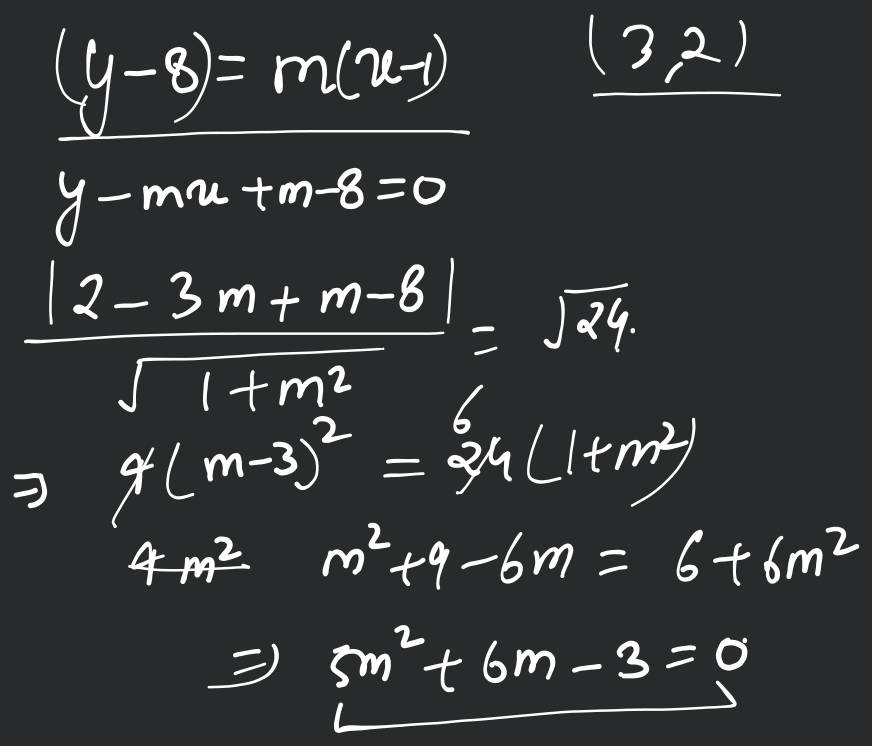 (y-8) = m(x-1) (3,2)
y-mx+m-8=0
|2-3m+m-8|
= √24.
√1+m²
⇒ 4(m-3)² = 24(1+m²)
6
4m² m²+9-6m = 6+6m²
⇒ 5m²+6m-3=0